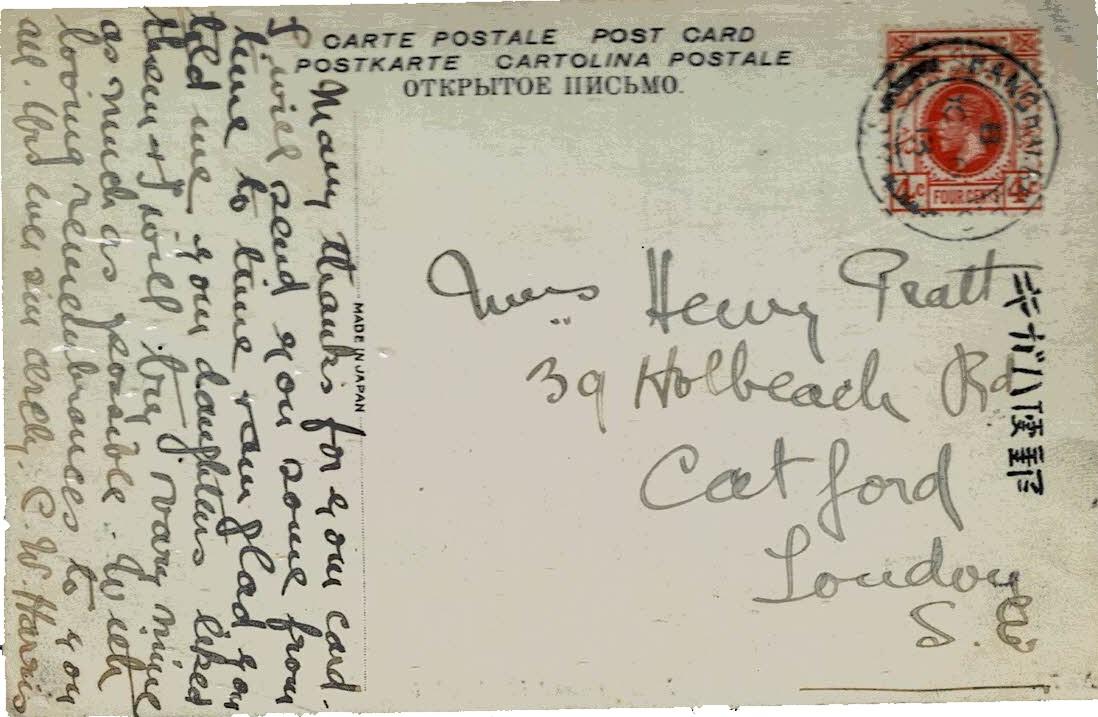 CARTE POSTALE POST CARD
POSTKARTE CARTOLINA POSTALE
ОТКРЫТОЕ ПИСЬМО.
Many thanks for your card.
I will send you some from
time to time & am glad you
told me your daughters liked
them & I will try vary mine
as much as possible. With
loving remembrances to you
all. Yrs ever sincerely, C. W. Harris
MADE IN JAPAN
4c FOUR CENTS 4c
Henry Pratt
39 Holbeach Rd
Catford
London
S.